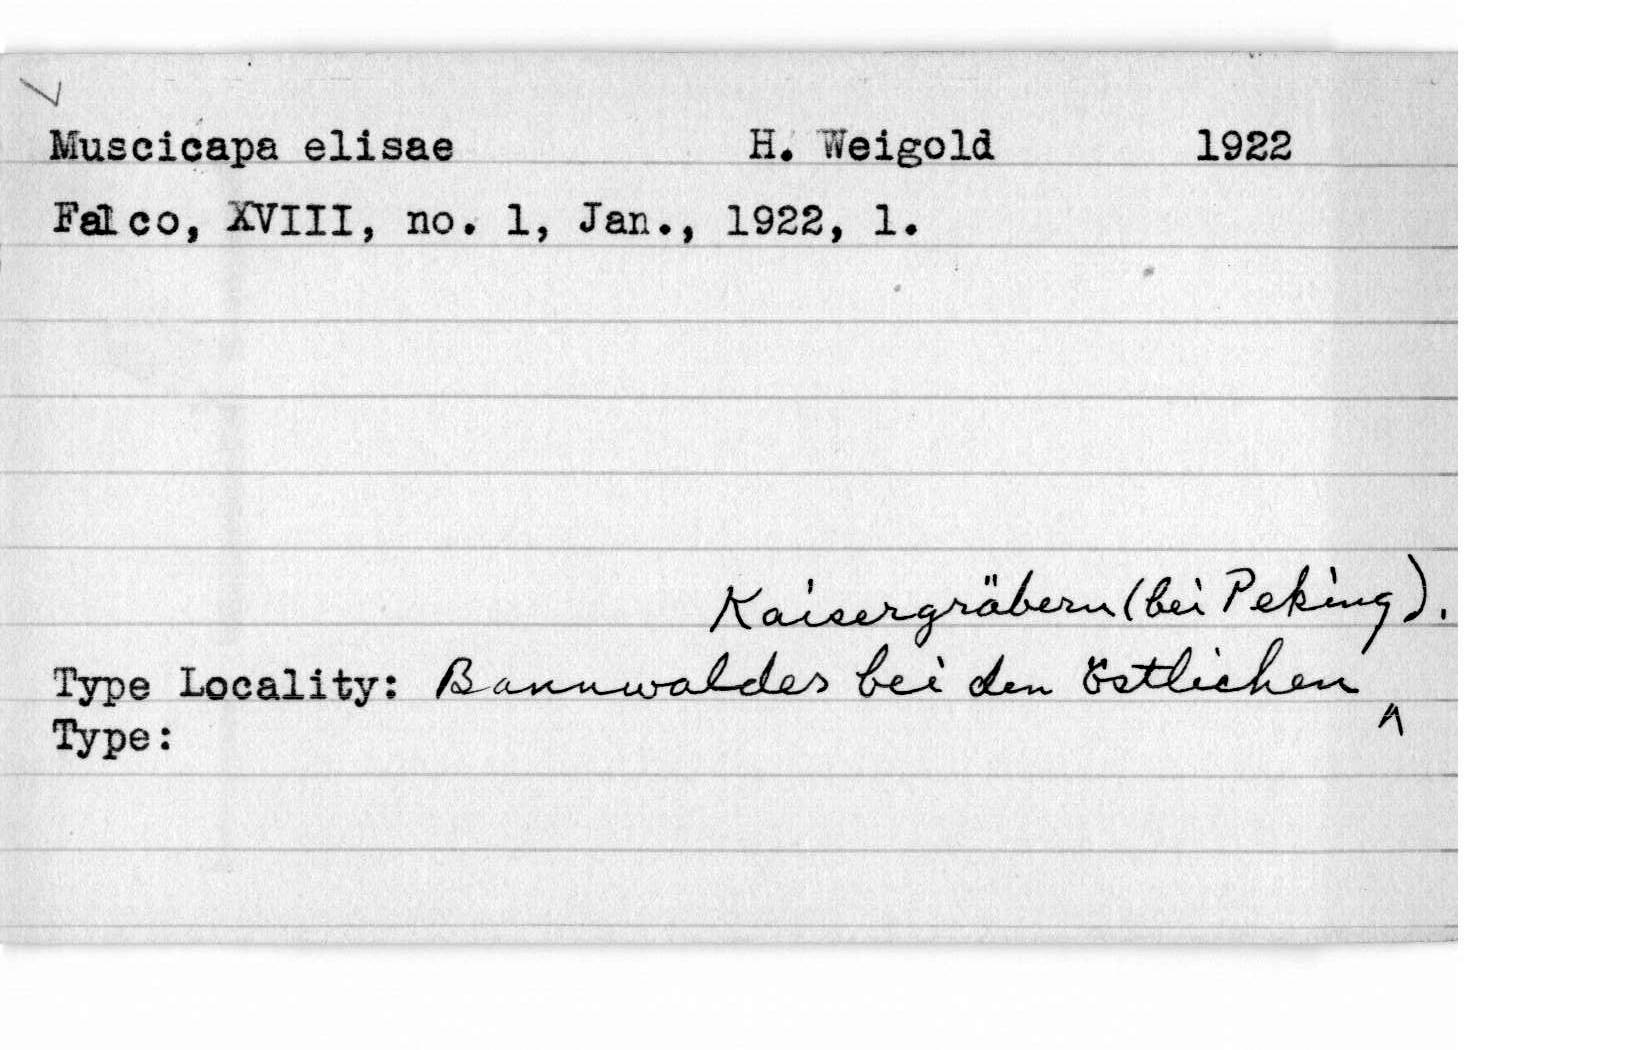 Muscicapa elisae H. Weigold 1922
Falco, XVIII, no. 1, Jan., 1922, 1.
Kaisergräbern (bei Peking).
Type Locality: Bannwaldes bei den östlichen ^
Type: